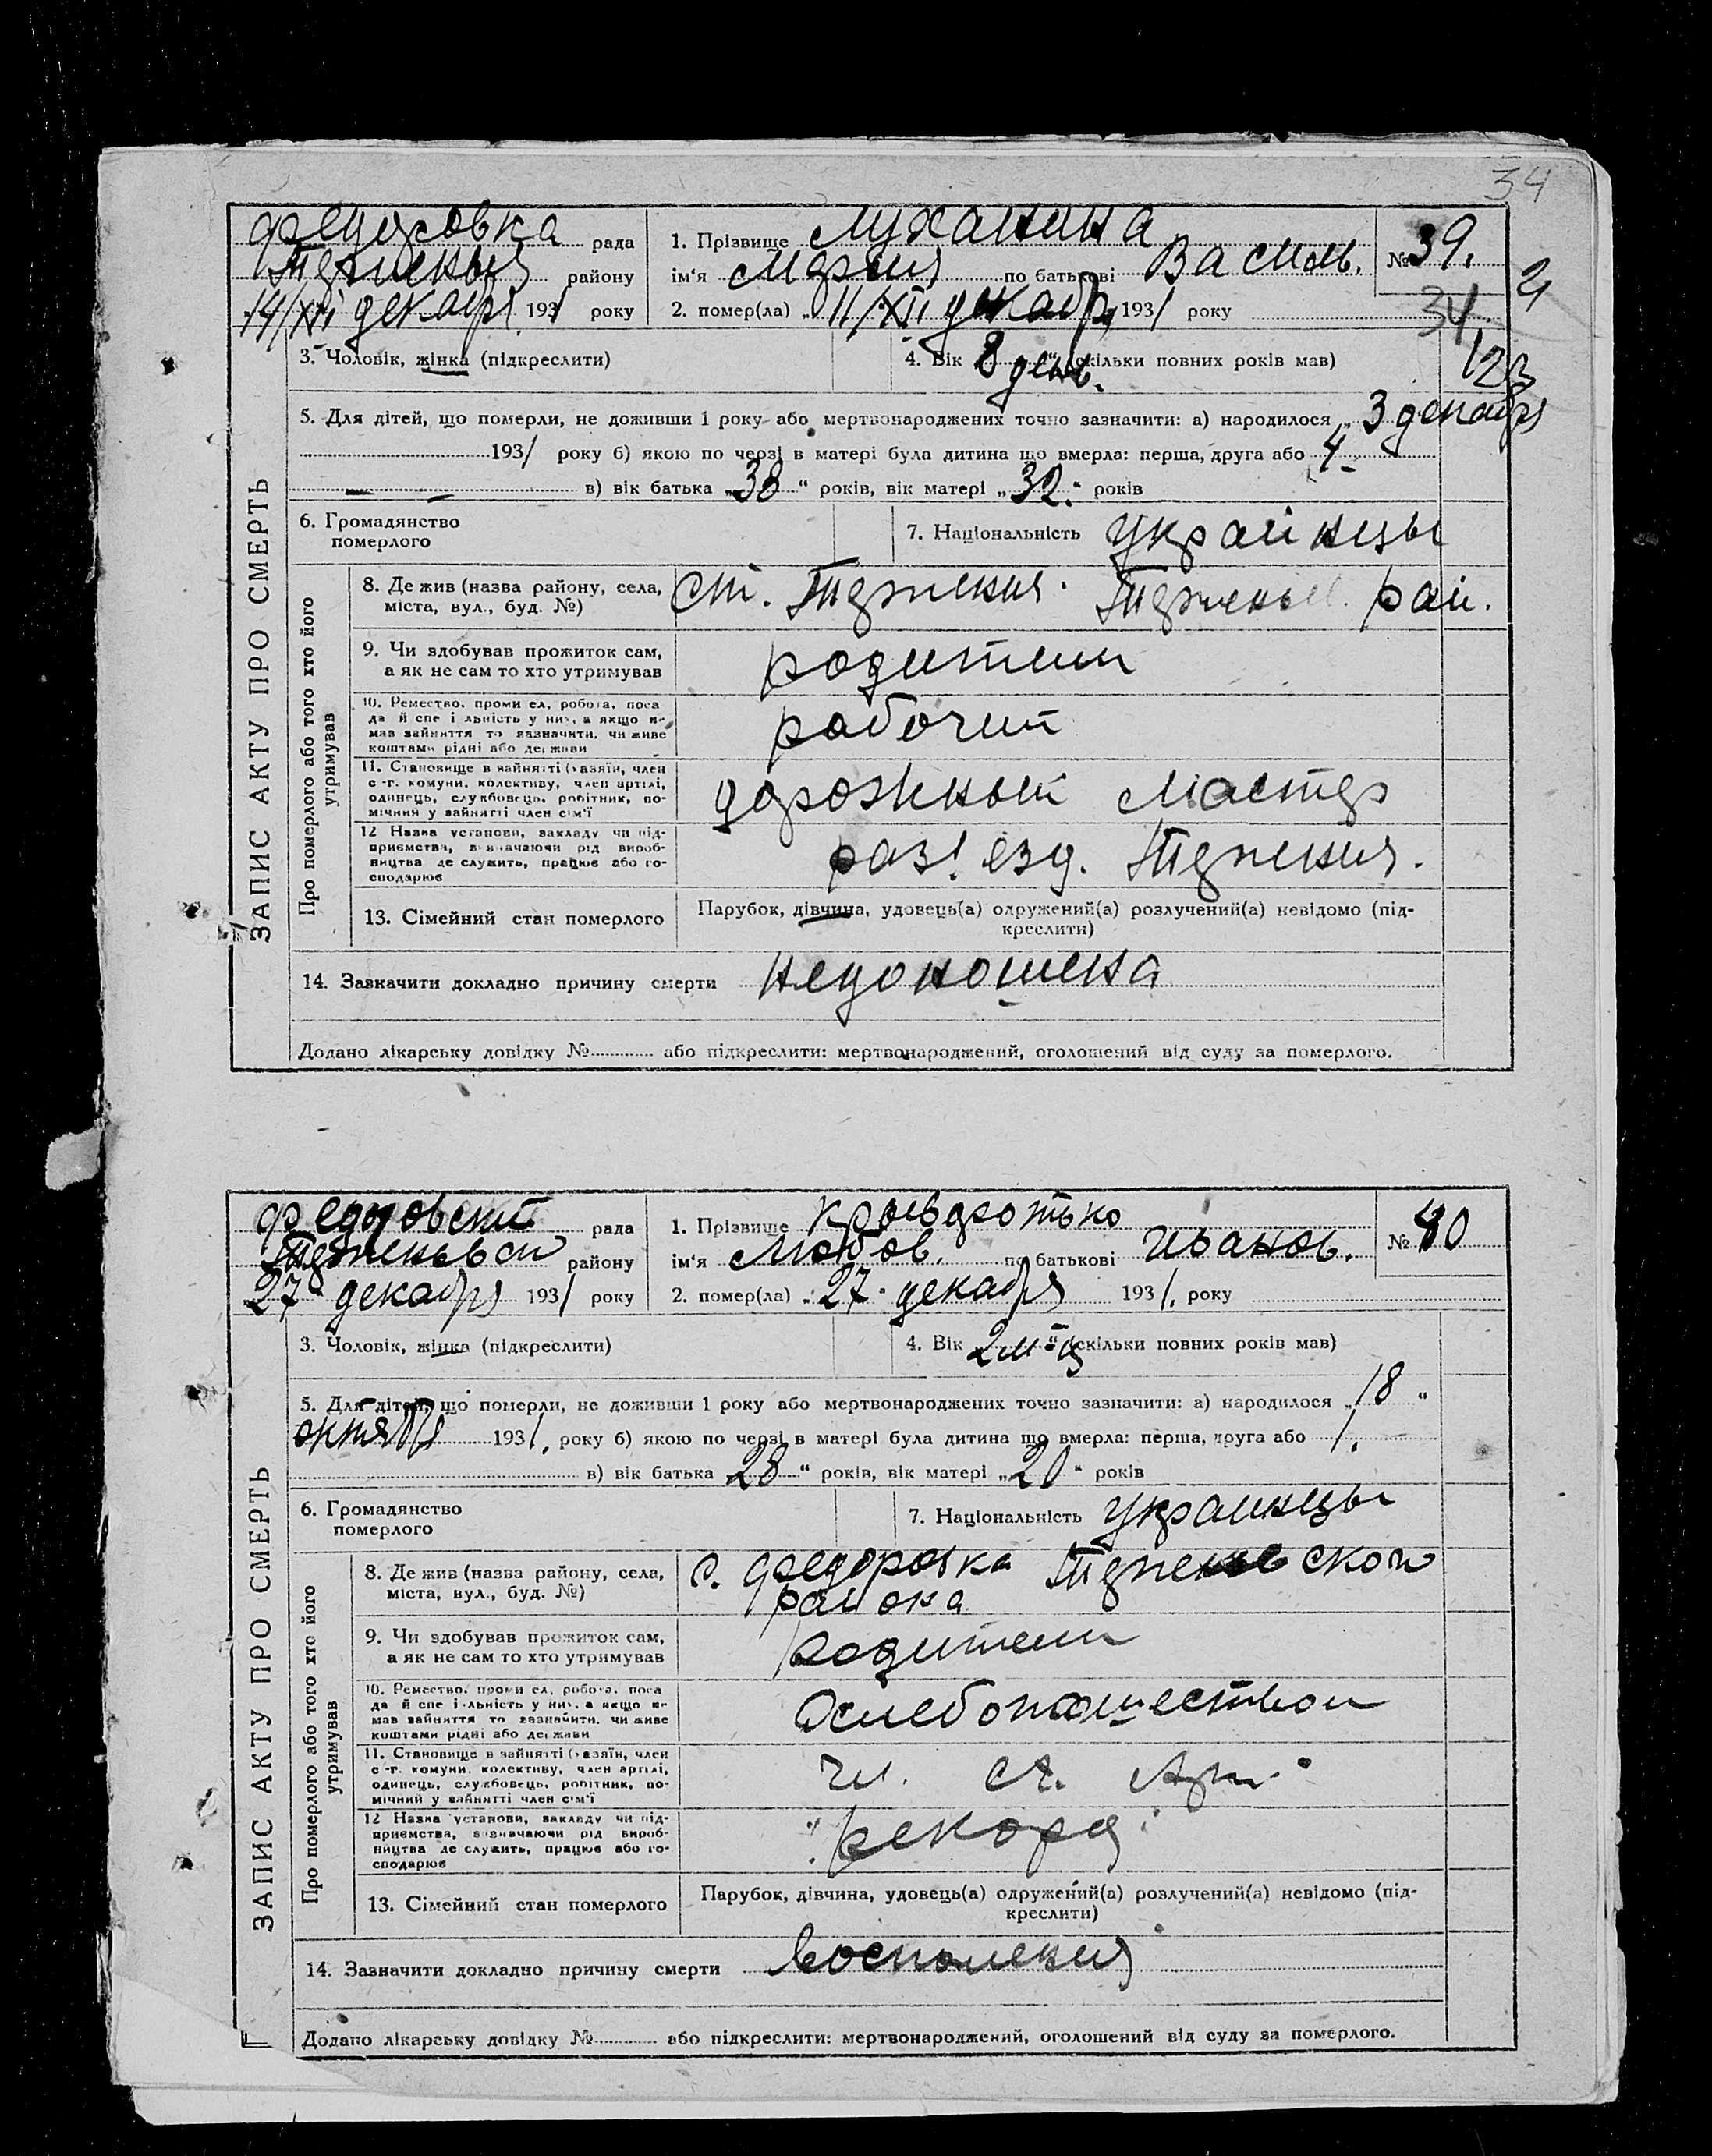 34
федоровка рада
району
14/XII декабря 1931 року
1. Прізвище Луханина
ім'я Мария по батькові Василь.
2. помер(ла) „11/XII декабр 1931 року
№ 39.
34.
3. Чоловік, жінка (підкреслити)
4. Вік 8 день. (скільки повних років мав)
5. Для дітей, що померли, не доживши 1 року або мертвонароджених точно зазначити: а) народилося „3 декабря
1931 року б) якою по черзі в матері була дитина що вмерла: перша, друга або 4
в) вік батька „38“ років, вік матері „32.“ років
6. Громадянство померлого
7. Національність Украинцы
ЗАПИС АКТУ ПРО СМЕРТЬ
Про померлого або того хто його утримував
8. Де жив (назва району, села, міста, вул., буд. №)
ст. рай.
9. Чи здобував прожиток сам, а як не сам то хто утримував
родители
10. Ремество, проми ел, робота, поса да й спе і льність у них, а якщо н- мав зайняття то зазначити, чи живе коштами рідні або держави
рабочий
11. Становище в зайнятті (хазяїн, член с-г. комуни, колективу, член артілі, одинець, службовець, робітник, по- мічний у зайнятті член сім'ї
дорожный мастер
12 Назва установи, закладу чи під- приємства, зазначаючи рід вироб- ництва де служить, працює або го- сподарює
раз! езд.
13. Сімейний стан померлого
Парубок, дівчина, удовець(а) одружений(а) розлучений(а) невідомо (під- креслити)
14. Зазначити докладно причину смерти недоношена
Додано лікарську довідку № або підкреслити: мертвонароджений, оголошений від суду за померлого.
федоровский рада
району
27 декабря 1931 року
1. Прізвище
ім'я Любов. по батькові Иванов.
2. помер(ла) „27 декабря 1931. року
№ 40
3. Чоловік, жінка (підкреслити)
4. Вік 2 м-ц (скільки повних років мав)
5. Для дітей, що померли, не доживши 1 року або мертвонароджених точно зазначити: а) народилося „18“
октября 1931. року б) якою по черзі в матері була дитина що вмерла: перша, друга або 1.
в) вік батька „28“ років, вік матері „20“ років
6. Громадянство померлого
7. Національність Украинцы
ЗАПИС АКТУ ПРО СМЕРТЬ
Про померлого або того хто його утримував
8. Де жив (назва району, села, міста, вул., буд. №)
с. федоровка
района
9. Чи здобував прожиток сам, а як не сам то хто утримував
родители
10. Ремество, проми ел, робота, поса да й спе і льність у них, а якщо н- мав зайняття то зазначити, чи живе коштами рідні або держави
11. Становище в зайнятті (хазяїн, член с-г. комуни, колективу, член артілі, одинець, службовець, робітник, по- мічний у зайнятті член сім'ї
чл. с.г. Арт.
12 Назва установи, закладу чи під- приємства, зазначаючи рід вироб- ництва де служить, працює або го- сподарює
"рекорд"
13. Сімейний стан померлого
Парубок, дівчина, удовець(а) одружений(а) розлучений(а) невідомо (під- креслити)
14. Зазначити докладно причину смерти воспаления
Додано лікарську довідку № або підкреслити: мертвонароджений, оголошений від суду за померлого.